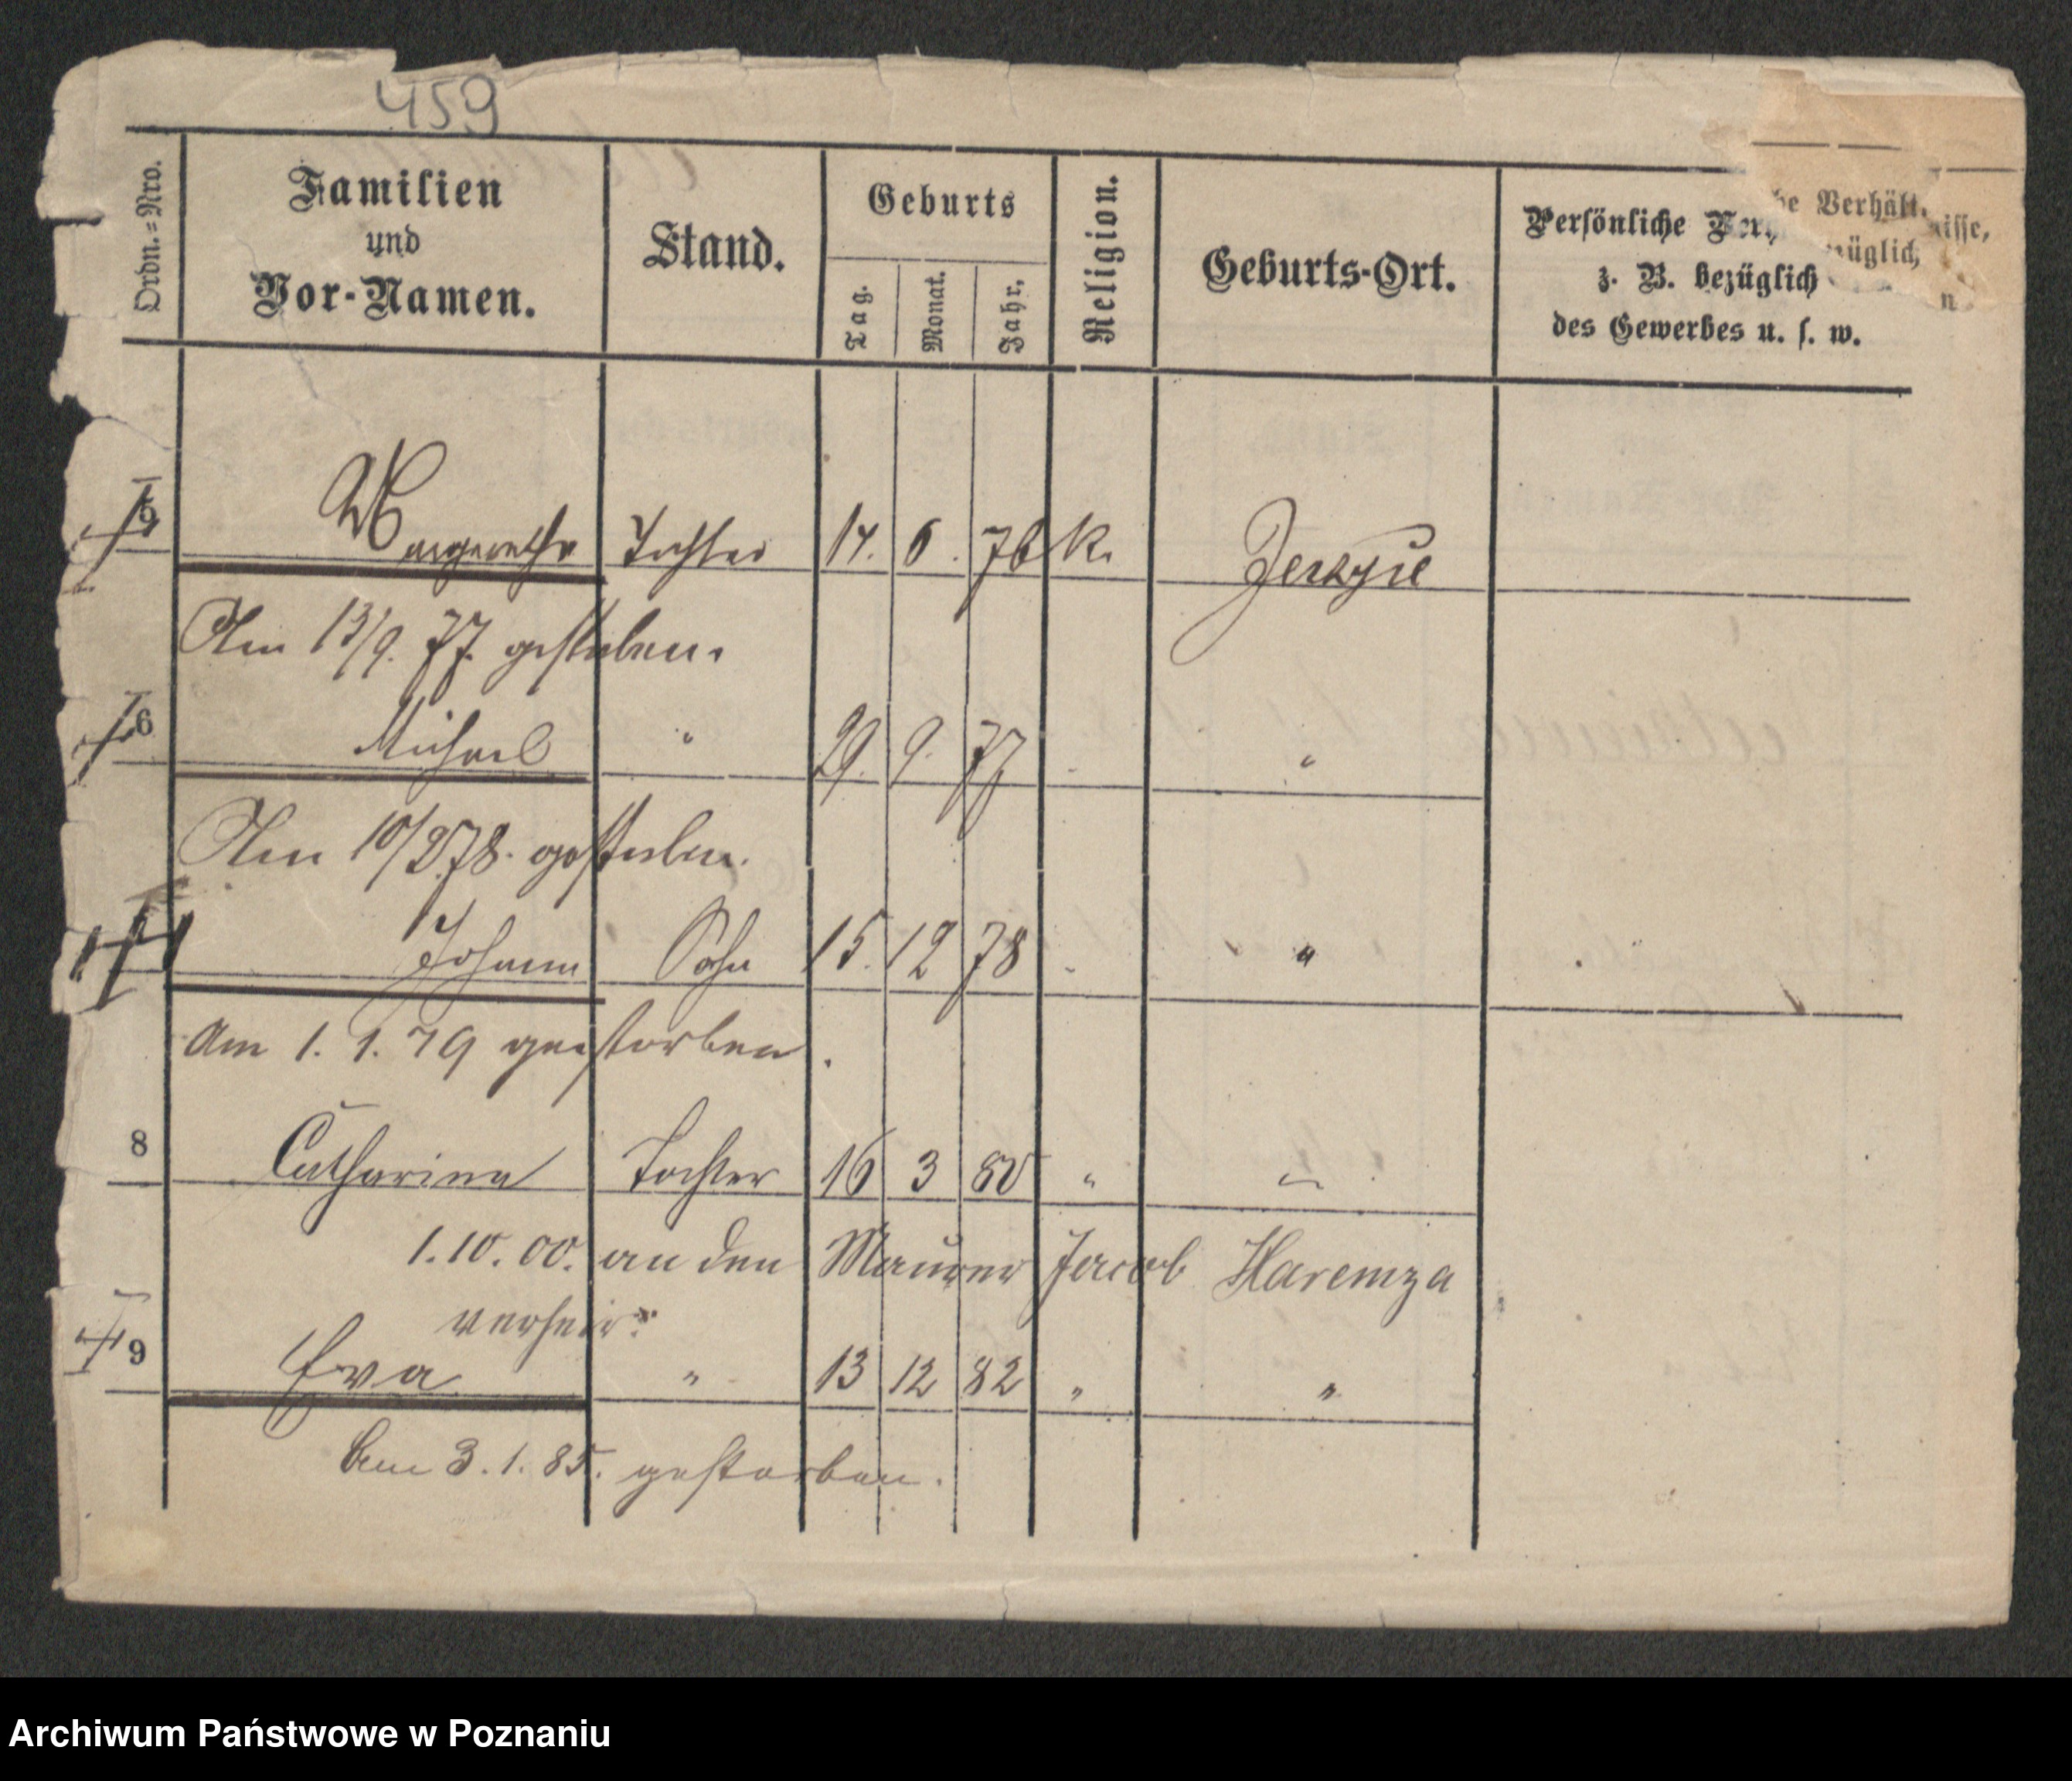 459
Ordn.-Nro.
Familien und Vor-Namen.
Stand.
Geburts
Tag. Monat. Jahr.
Religion.
Geburts-Ort.
Persönliche
z. B. bezüglich
des Gewerbes u. s. w.
he Verhält
nisse,
züglich
n
5 Margarethe Tochter 14. 6. 76 k. Jerzyce
Am 13/9. 77. gestorben.
6 Michael " 29. 9. 77 "
Am 10/2 78. gestorben.
Johann Sohn 15. 12 78 "
Am 1. 1. 79 gestorben.
8 Catharina Tochter 16 3 80 " "
1.10.00. an den Maurer Jacob Haremza
verheir:
9 Eva " 13 12 82 " "
Am 3.1.85. gestorben.
Archiwum Państwowe w Poznaniu